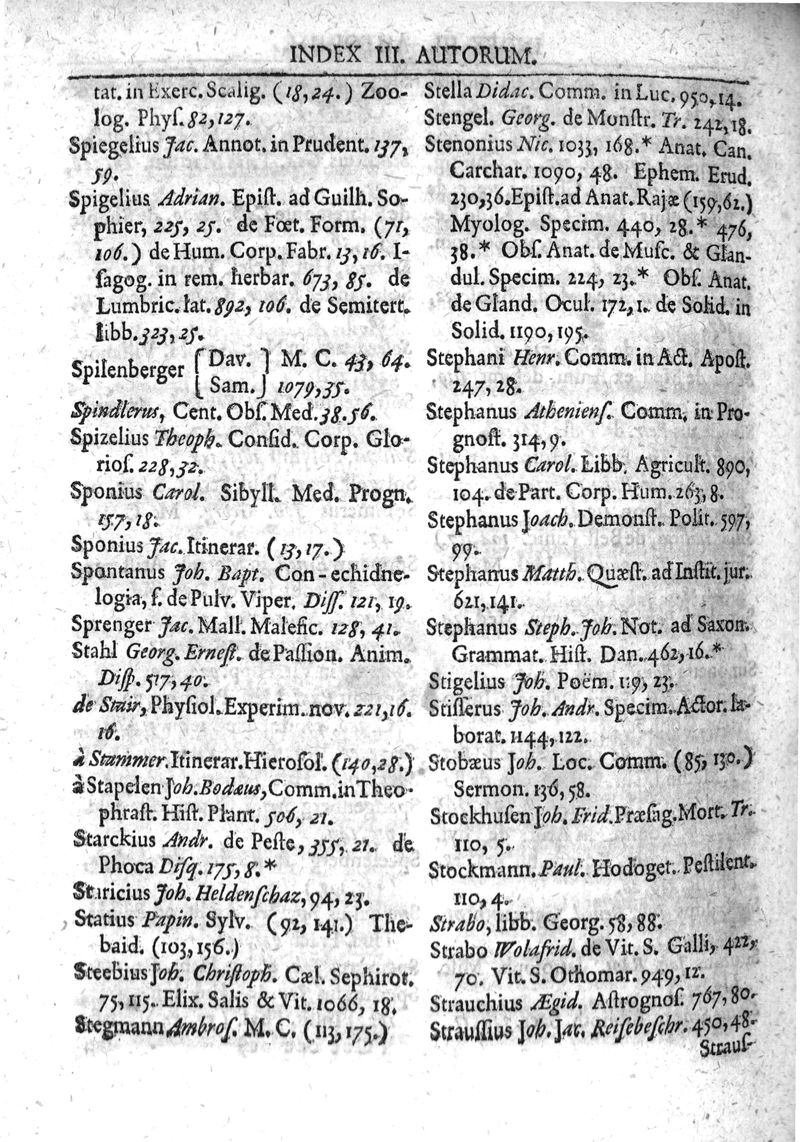 INDEX III. AUTORUM.
tat. in Exerc. Scalig. (18,24.) Zoo-
log. Phyſ. 82,127.
Spiegelius Jac. Annot. in Prudent. 137,
59.
Spigelius Adrian. Epiſt. ad Guilh. So-
phier, 225, 25. de Fœt. Form. (71,
106.) de Hum. Corp. Fabr. 13,16. I-
ſagog. in rem. herbar. 673, 85. de
Lumbric. lat. 892, 106. de Semitert.
libb. 323,25.
Spilenberger [Dav. ] M. C. 43, 64.
[Sam.] 1079,35.
Spindlerus, Cent. Obſ. Med. 38.56.
Spizelius Theoph. Conſid. Corp. Glo-
rioſ. 228,32.
Sponius Carol. Sibyll. Med. Progn.
157,18.
Sponius Jac. Itinerar. (13,17.)
Spontanus Joh. Bapt. Con-echidne-
logia, ſ. de Pulv. Viper. Diſſ. 121, 19.
Sprenger Jac. Mall. Malefic. 128, 41.
Stahl Georg. Erneſt. de Paſſion. Anim.
Diſp. 517,40.
de Stair, Phyſiol. Experim. nov. 221,16.
16.
à Stammer. Itinerar. Hieroſol. (140,28.)
à Stapelen Joh. Bodæus, Comm. in Theo-
phraſt. Hiſt. Plant. 506, 21.
Starckius Andr. de Peſte, 355, 21. de
Phoca Diſq. 175, 8.*
Staricius Joh. Heldenſchaz, 94, 23.
Statius Papin. Sylv. (92, 141.) The-
baid. (103,156.)
Steebius Joh. Chriſtoph. Cæl. Sephirot.
75, 115. Elix. Salis & Vit. 1066, 18.
Stegmann Ambroſ. M. C. (113,175.)
Stella Didac. Comm. in Luc. 950,14.
Stengel. Georg. de Monſtr. Tr. 242,18.
Stenonius Nic. 1033, 168.* Anat. Can.
Carchar. 1090, 48. Ephem. Erud.
230,36. Epiſt. ad Anat. Rajæ (159,62.)
Myolog. Specim. 440, 28.* 476,
38.* Obſ. Anat. de Muſc. & Glan-
dul. Specim. 224, 23.* Obſ. Anat.
de Gland. Ocul. 172,1. de Solid. in
Solid. 1190, 195.
Stephani Henr. Comm. in Act. Apoſt.
247, 28.
Stephanus Athenienſ. Comm. in Pro-
gnoſt. 314,9.
Stephanus Carol. Libb. Agricult. 890,
104. de Part. Corp. Hum. 263, 8.
Stephanus Joach. Demonſt. Polit. 597,
99.
Stephanus Matth. Quæſt. ad Inſtit. jur.
621,141.
Stephanus Steph. Joh. Not. ad Saxon.
Grammat. Hiſt. Dan. 462,16.*
Stigelius Joh. Poëm. 119, 23.
Stiſſerus Joh. Andr. Specim. Actor. la-
borat. 1144, 122.
Stobæus Joh. Loc. Comm. (85, 130.)
Sermon. 136, 58.
Stockhuſen Joh. Frid. Præſag. Mort. Tr.
110, 5.
Stockmann. Paul. Hodoget. Peſtilent.
110, 4.
Strabo, libb. Georg. 58, 88.
Strabo Wolafrid. de Vit. S. Galli, 422,
70. Vit. S. Othomar. 949, 12.
Strauchius Ægid. Aſtrognoſ. 767, 80.
Strauſſius Joh. Jac. Reiſebeſchr. 450,48.
Strauſ-